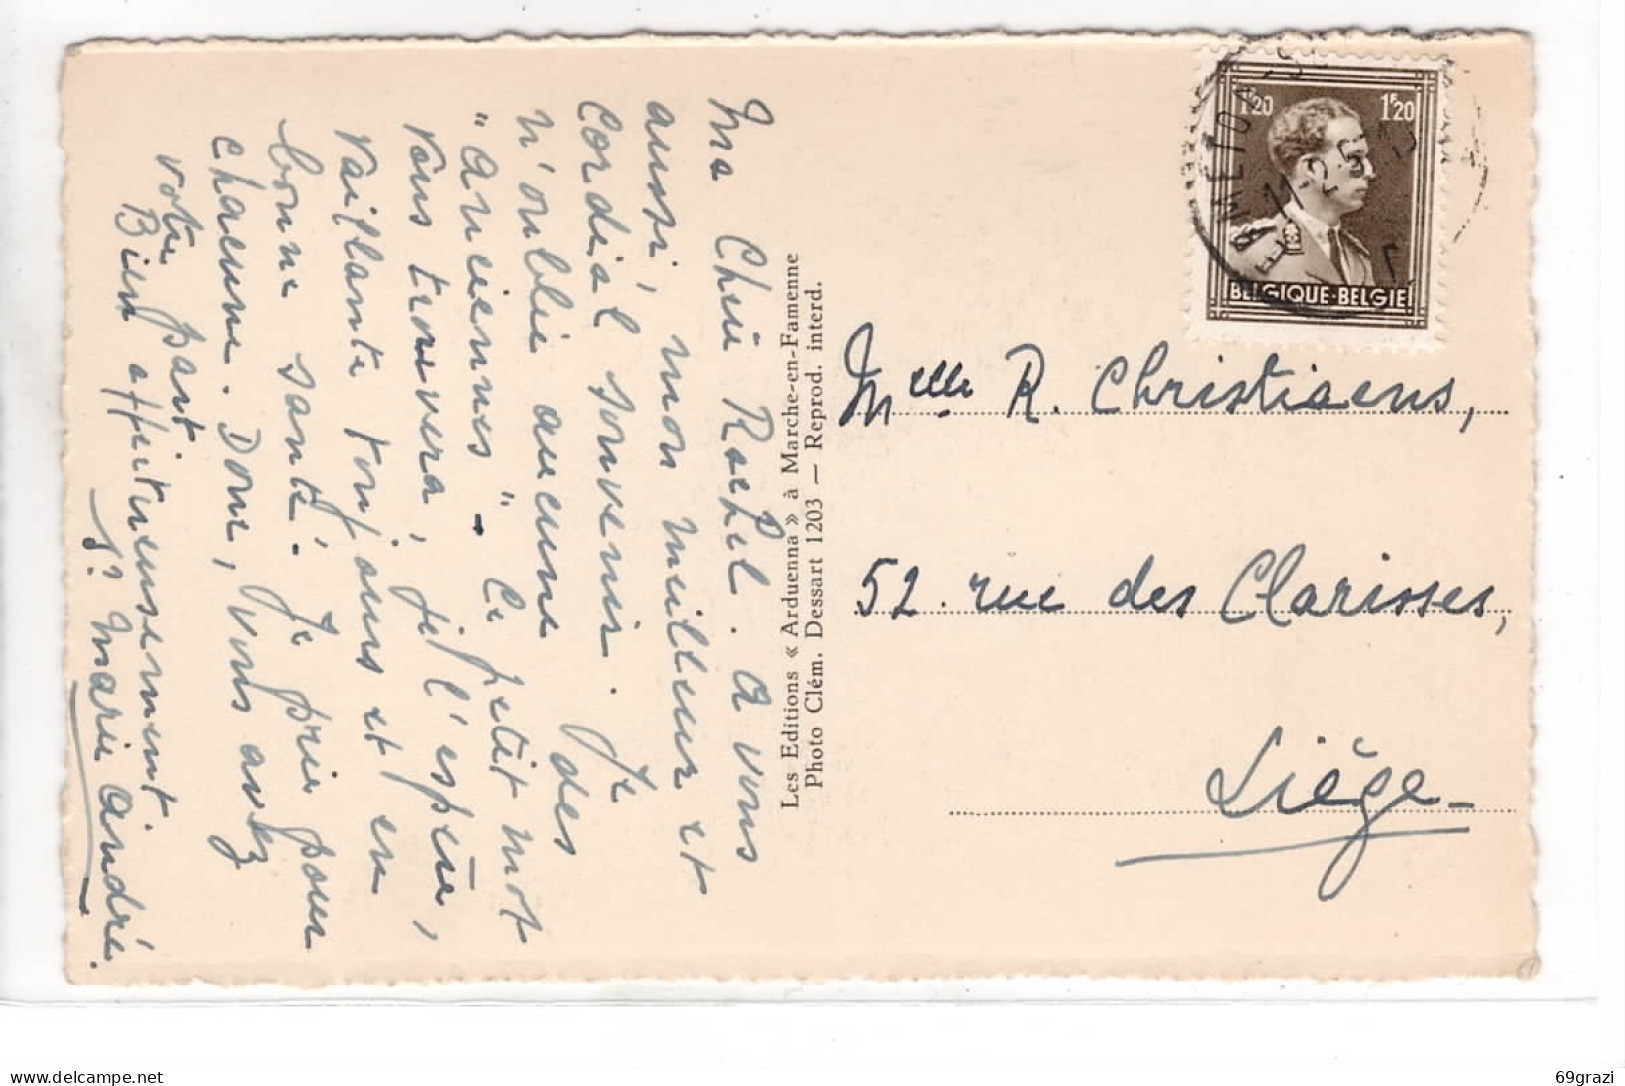 Ma Chère Rachel. A vous
aussi, mon meilleur et
cordial souvenir. Je
n'oublie aucune des
"anciennes". Ce petit mot
vous trouvera, je l'espère,
vaillante toujours et en
bonne santé. Je prie pour
chacune. Donc, vous avez
votre part.
Bien affectueusement.
Sr Marie André.
Les Editions « Arduenna » à Marche-en-Famenne
Photo Clém. Dessart 1203 — Reprod. interd.
1F20 1F20
BELGIQUE-BELGIE
Melle R. Christiaens,
52. rue des Clarisses,
Liège
www.delcampe.net
69grazi